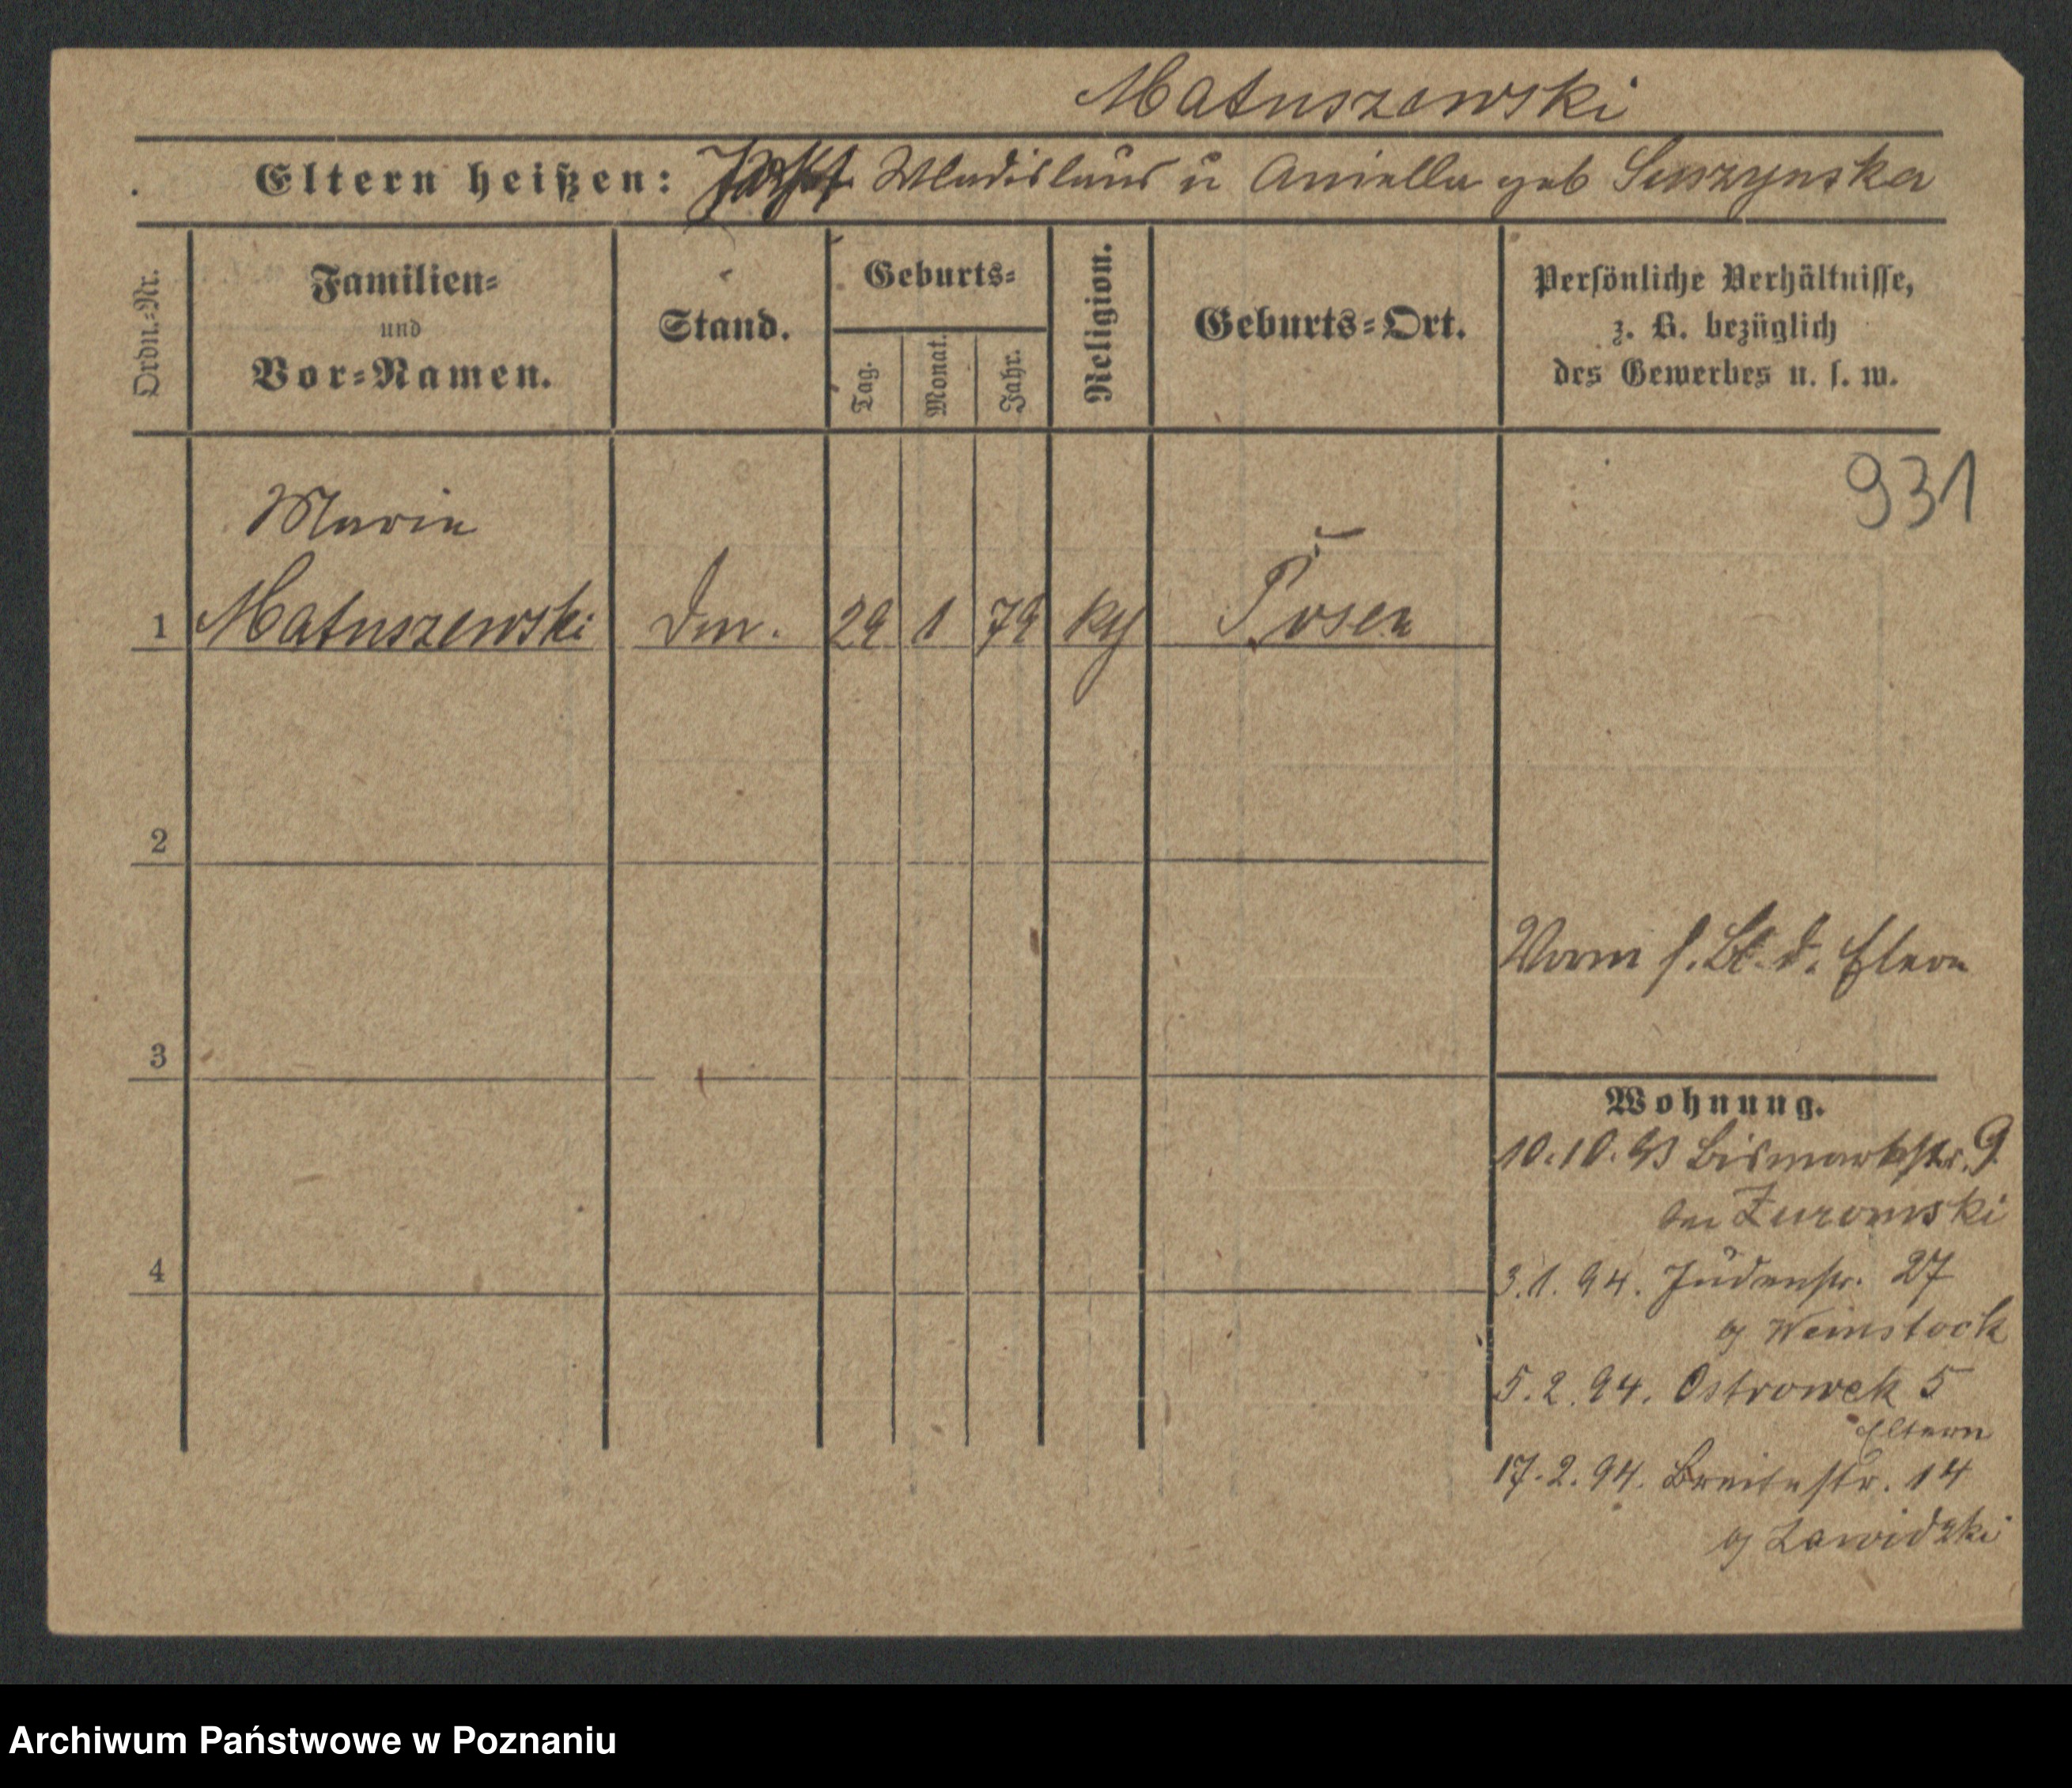 Matuszewski
Eltern heißen: Wladislaus u Aniella geb Suszynska
Ordn.-Nr.
Familien- und Vor-Namen.
Stand.
Geburts-
Tag.
Monat.
Jahr.
Religion.
Geburts-Ort.
Persönliche Verhältnisse,
z. B. bezüglich
des Gewerbes u. s. w.
931
Maria
1 Matuszewski 29 1 79 Posen
2
Vorm s. Bl. d. Eltern
3
Wohnung.
10.10.93 Bismarkstr. 9
bei Zuromski
4
3.1.94. Judenstr. 27
b/ Weinstock
5.2.94. Ostrowek 5
Eltern
17.2.94. Breitestr. 14
b/ Zawidzki
Archiwum Państwowe w Poznaniu